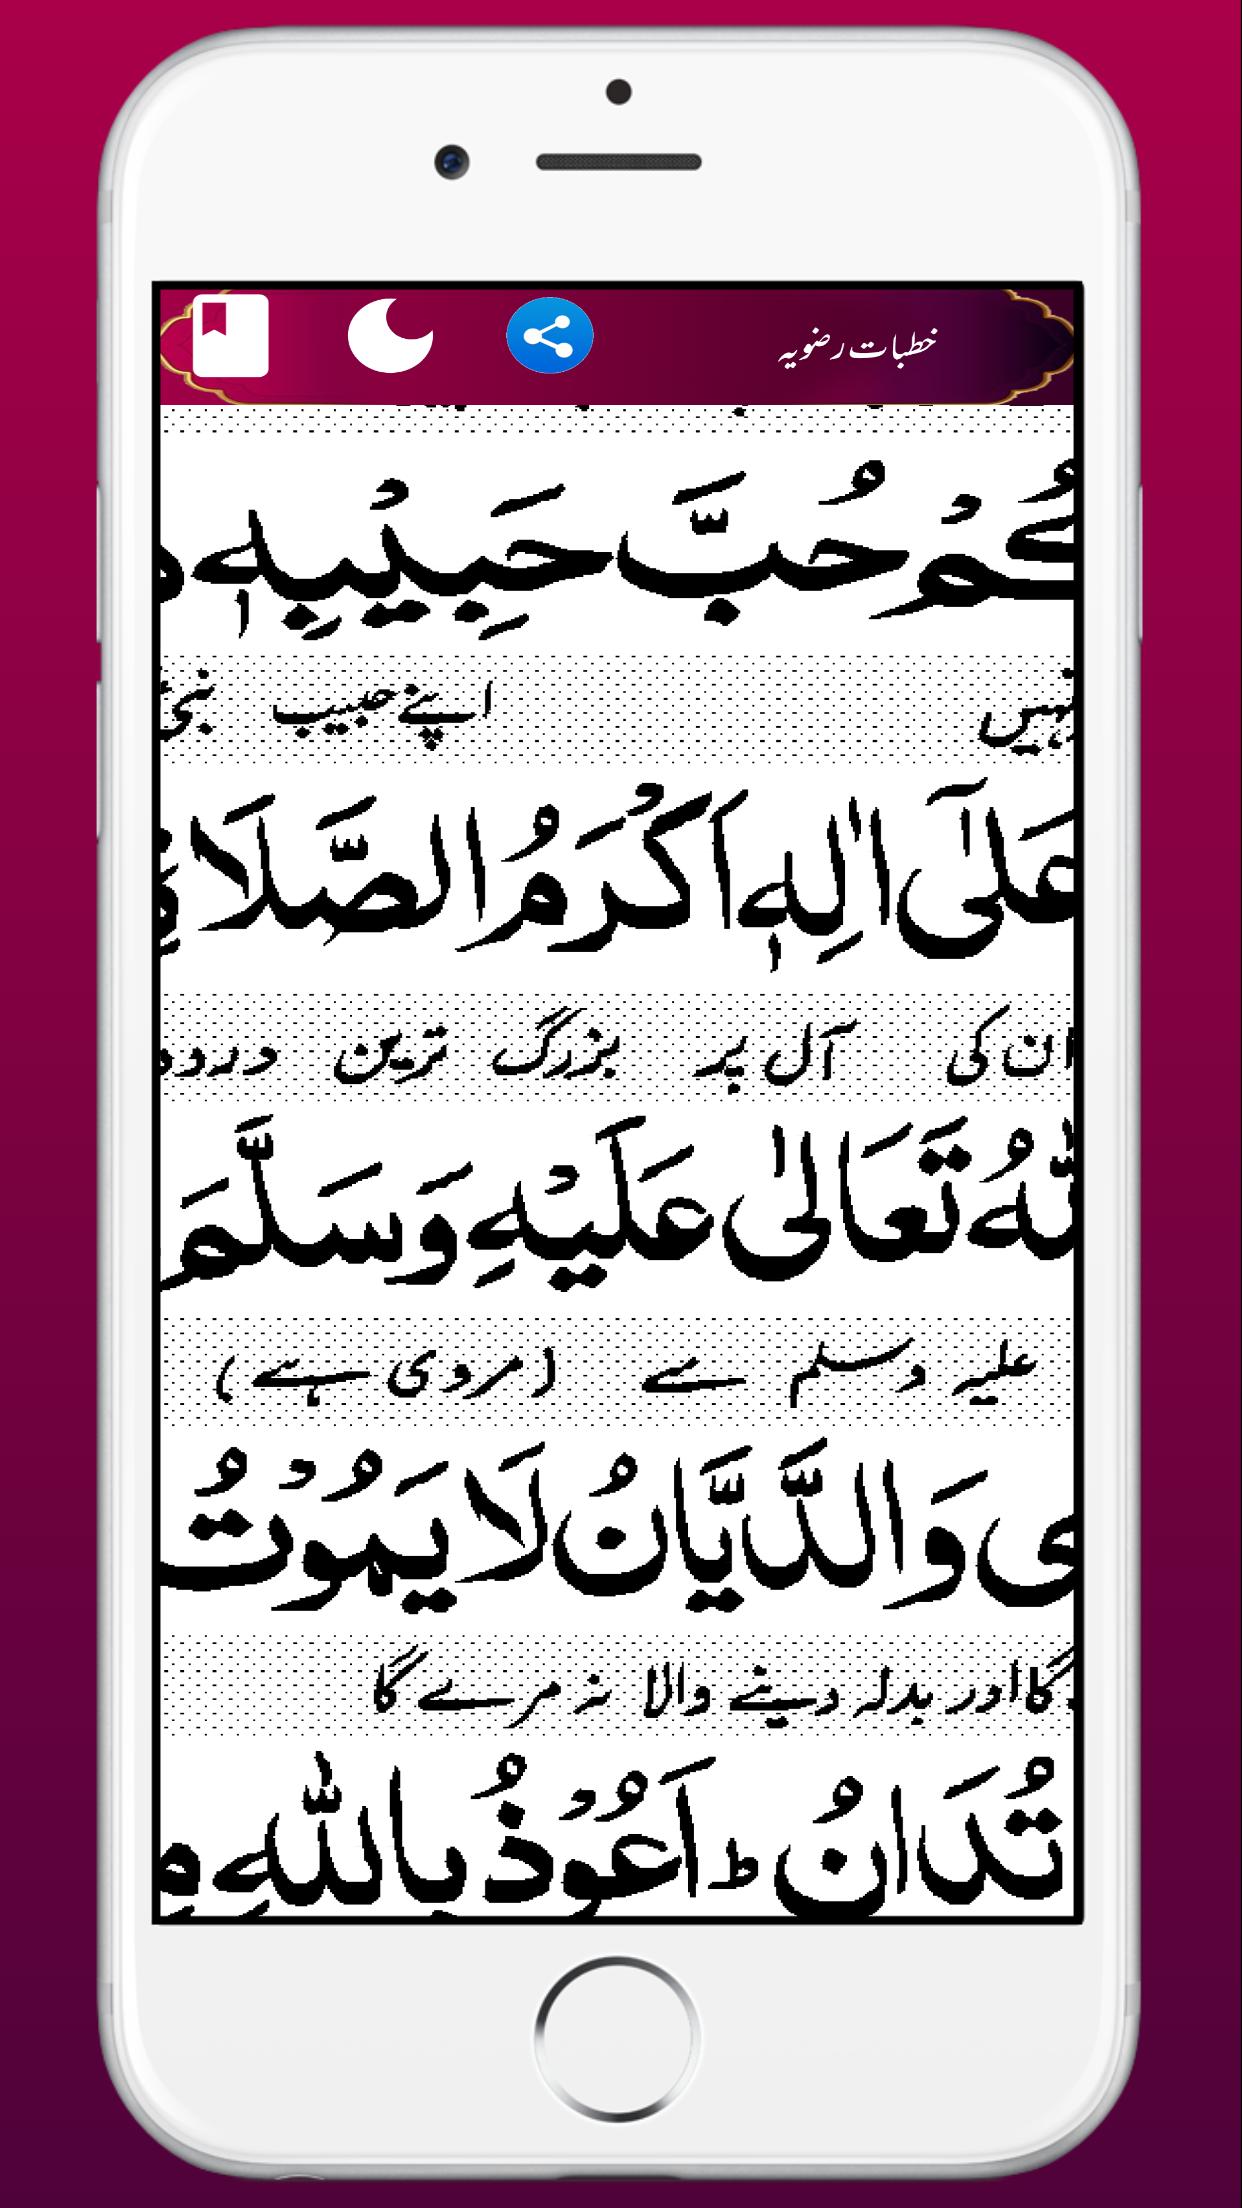 خطبات رضویہ
حُبَّ حَبِيْبِهٖ
نہیں اپنے حبیب
عَلٰٓى اٰلِهٖ اَكْرَمُ الصَّلَاةِ
ان کی آل پر بزرگ ترین درود
تَعَالٰى عَلَيْهِ وَسَلَّمَ
علیہ وسلم سے (مروی ہے)
وَالدَّيَّانُ لَا يَمُوْتُ
گا اور بدلہ دینے والا نہ مرے گا
تُدَانُ ط اَعُوْذُ بِاللّٰهِ